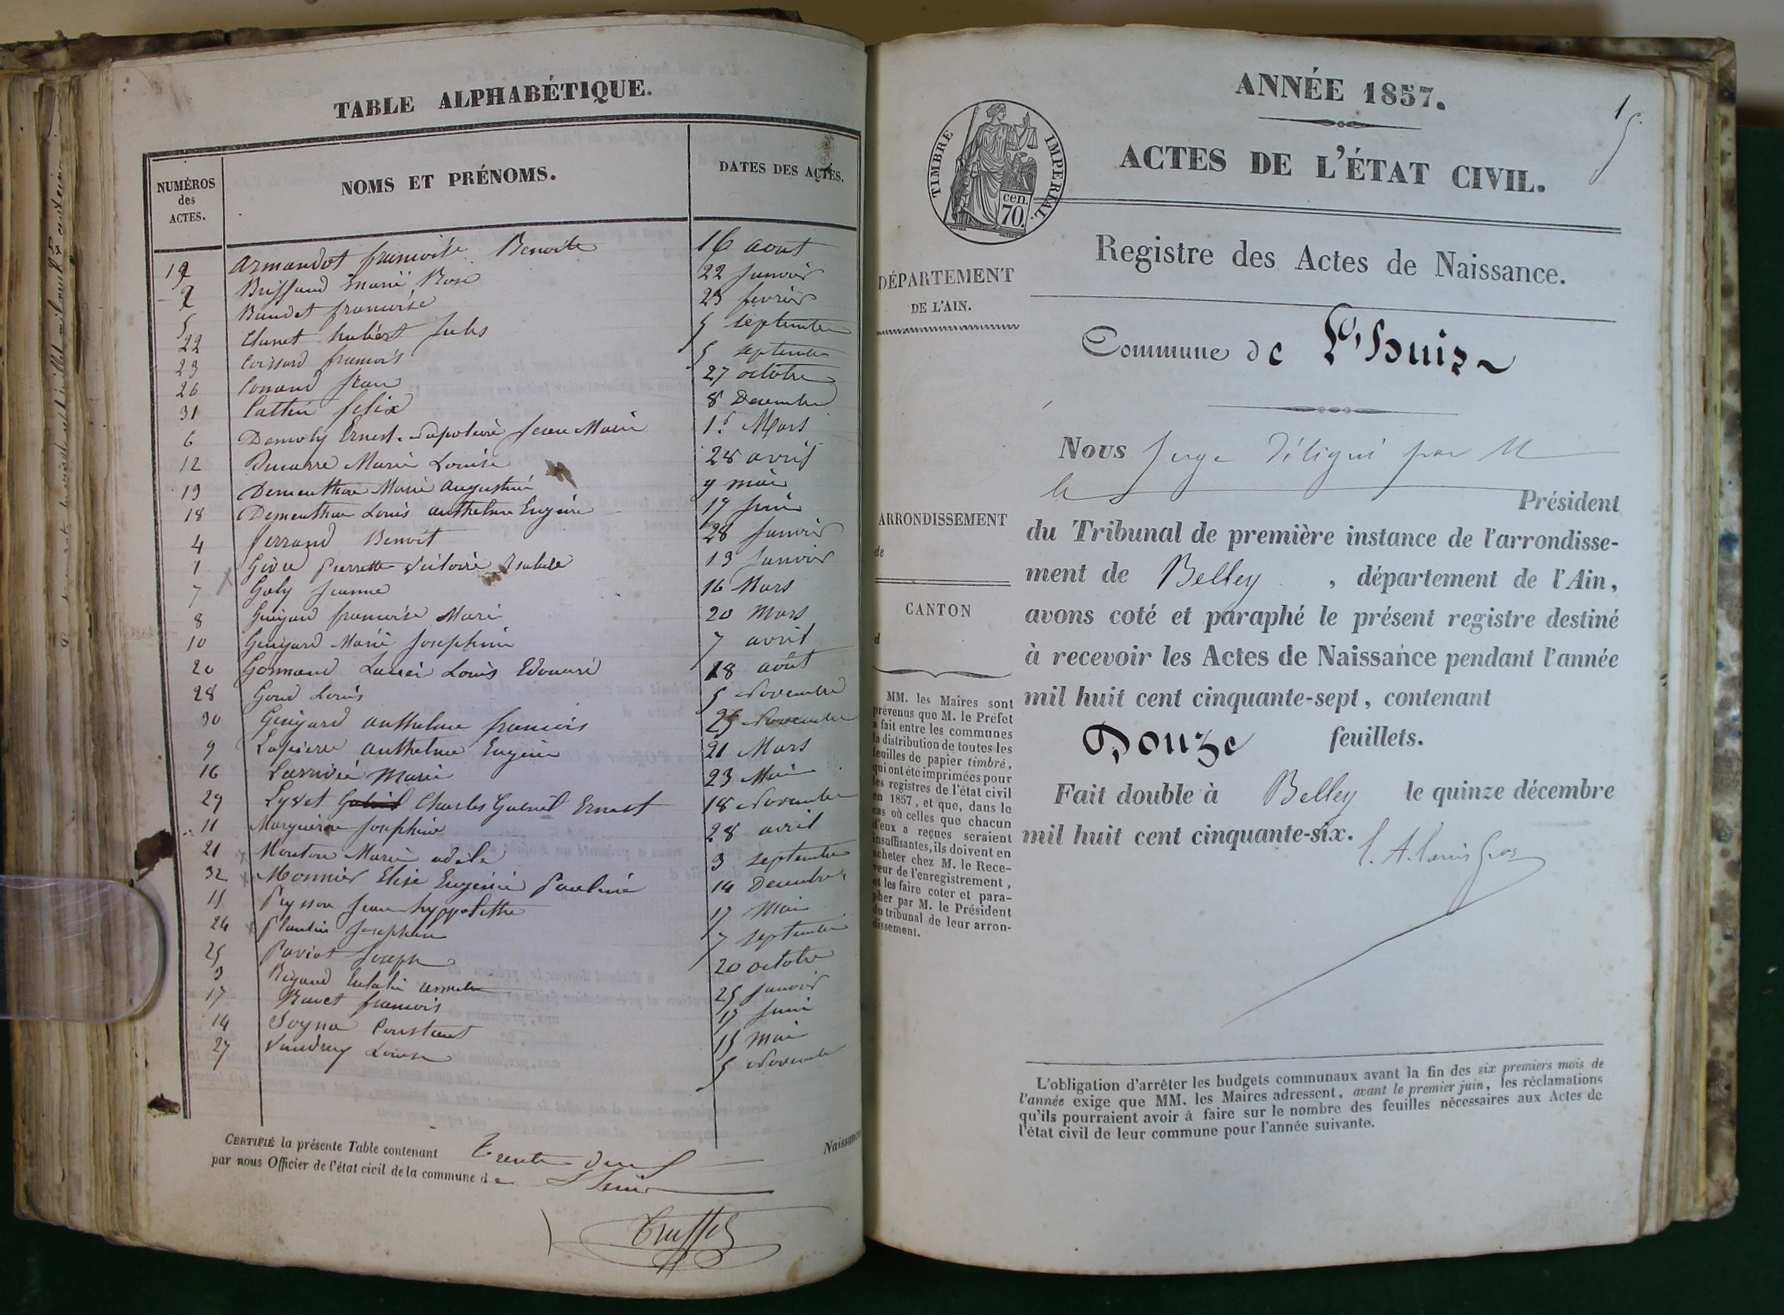 TABLE ALPHABÉTIQUE.
NUMÉROS des ACTES.
NOMS ET PRÉNOMS.
DATES DES ACTES.
19 Armandot francoise Benoite 16 aout
2 Brissaud Marie Rose 22 Janvier
5 Baudet francoise 23 fevrier
22 Clunet hubert Jules 5 septembre
23 Coissard francois 5 septembre
26 Conand Jean 27 octobre
31 Cattin felix 8 Decembre
6 Ernest Napoleon Jean Marie 1er Mars
12 Ducarre Marie Louise 28 avril
13 Dementhon Marie augustine 9 mai
18 Dementhon Louis anthelme Eugène 17 Juin
4 ferrand Benoit 28 Janvier
1 Pierrette Victoire 13 Janvier
7 Goly Jeanne 16 Mars
8 Guigard francoise Marie 20 Mars
10 Guigard Marie Josephine 7 avril
20 Gonnand Louis Edouard 18 août
28 Goud Louis 5 Novembre
30 Guigard anthelme francois 25 Novembre
9 anthelme Eugène 21 Mars
16 Marie 23 Mai
29 Lyvet Charles Gabriel Ernest 18 Novembre
11 Josephine 28 avril
21 Mouton Marie adele 3 septembre
32 Monnier Elise Eugénie Pauline 14 Decembre
15 Peysson Jean hyppolithe 17 Mai
24 Plantin Josephine 7 septembre
25 Paviot Joseph 20 octobre
3 Rigaud 25 Janvier
17 Ravet francois 17 Juin
14 Constant 15 Mai
27 Vaudray Louise 5 Novembre
CERTIFIÉ la présente Table contenant trente deux Naissances
par nous Officier de l'état civil de la commune de L'huis
ANNÉE 1857.
1
ACTES DE L'ÉTAT CIVIL.
TIMBRE IMPÉRIAL.
cen.
70
Registre des Actes de Naissance.
DÉPARTEMENT
DE L'AIN.
Commune de L'huis
Nous Juge Délégué par M
le Président
ARRONDISSEMENT
de
du Tribunal de première instance de l'arrondisse-
ment de Belley, département de l'Ain,
CANTON
d
avons coté et paraphé le présent registre destiné
à recevoir les Actes de Naissance pendant l'année
mil huit cent cinquante-sept, contenant
Douze feuillets.
Fait double à Belley le quinze décembre
mil huit cent cinquante-six.
MM. les Maires sont
prévenus que M. le Préfet
a fait entre les communes
la distribution de toutes les
feuilles de papier timbré,
qui ont été imprimées pour
les registres de l'état civil
en 1857, et que, dans le
cas où celles que chacun
d'eux a reçues seraient
insuffisantes, ils doivent en
acheter chez M. le Rece-
veur de l'enregistrement,
et les faire coter et para-
pher par M. le Président
du tribunal de leur arron-
dissement.
L'obligation d'arrêter les budgets communaux avant la fin des six premiers mois de
l'année exige que MM. les Maires adressent, avant le premier juin, les réclamations
qu'ils pourraient avoir à faire sur le nombre des feuilles nécessaires aux Actes de
l'état civil de leur commune pour l'année suivante.